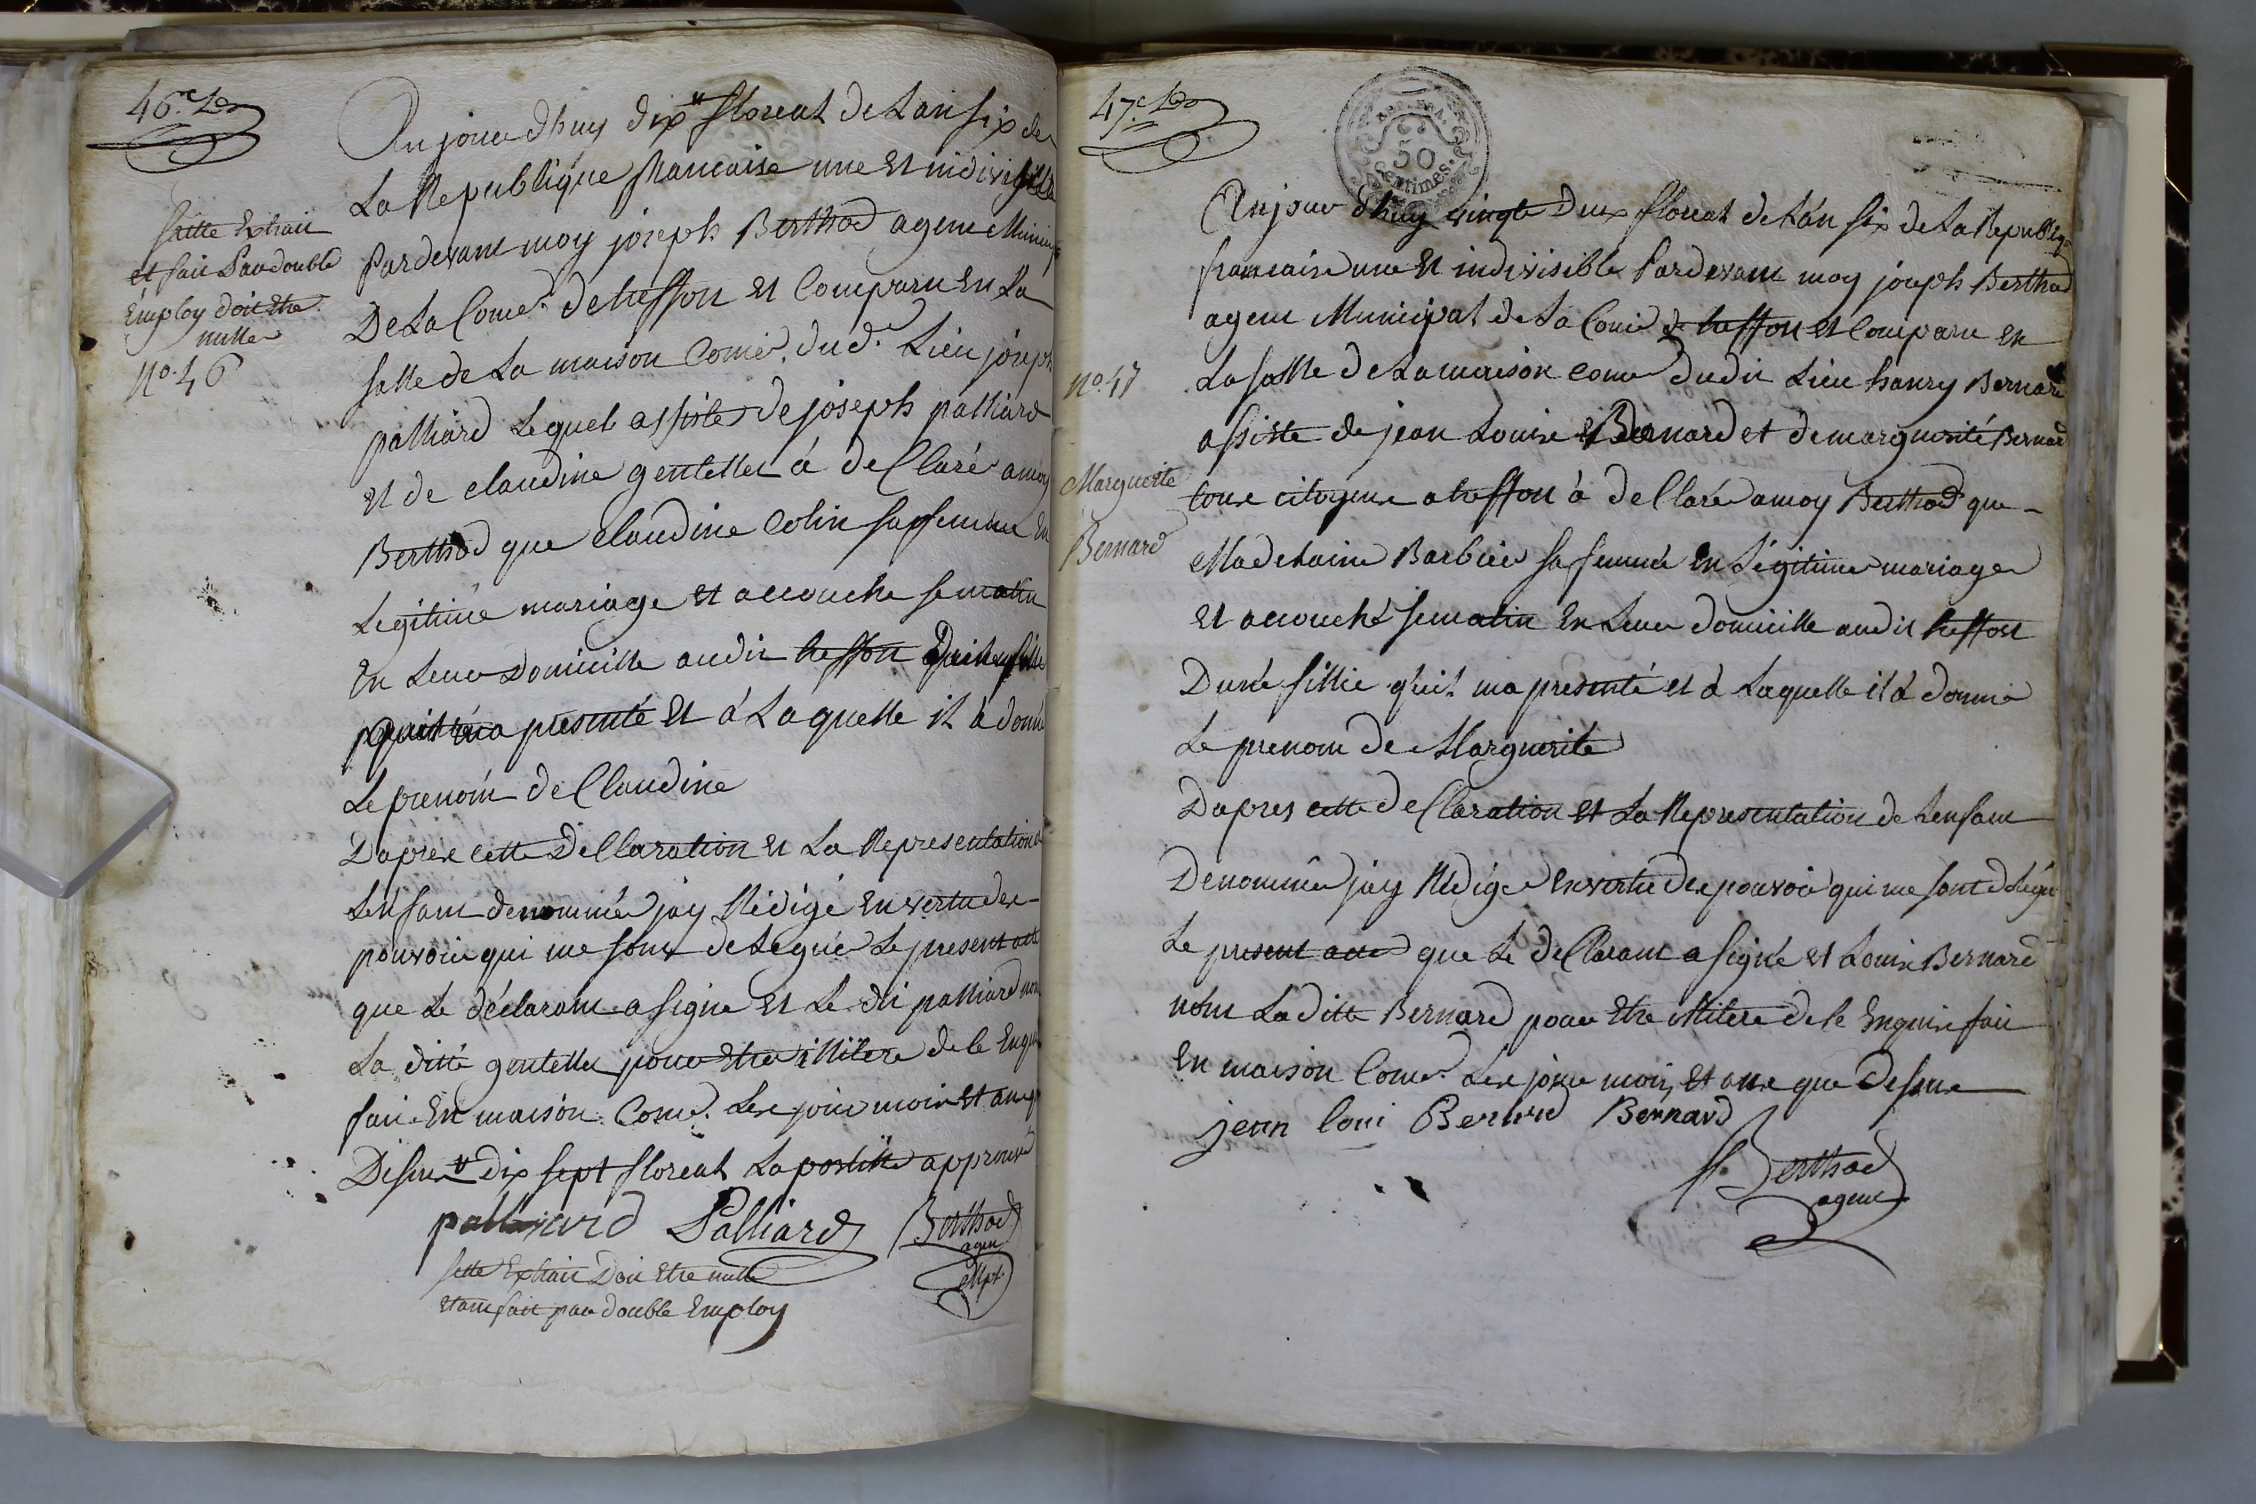 46.e Lo
Aujourdhuy dix # floreal de Lan six de
La Republique francaise une et indivisible
Pardevant moy joseph Berthod agent Municip
De La Come. de treffort et Comparu En La
salle de La maison Come. dud. Lieu joseph
palliard Lequel assiste de joseph palliard
et de claudine gentellet à deClaré amoy
Berthod que Claudine Colin sa femme En
Legitime mariage et accouche se matin
En Leur Domicille audit treffort
quil ma presenté et à Laquelle il à donné
Le prenom de Claudine
Dapres cette DeClaration et La Representation
Lenfant denommée jay Rédigé en vertu des
pouvoir qui me sont delegué Le present acte
que Le déclarant a signe et Le dit palliard non
La ditte gentellet pour Etre illitere de le Enquis
fait En maison Come. Les jour mois et an q
Desus # dix sept floreal La postille approuvé
palliard Palliard Berthod
agen
Mpl.
sette Extrait Doit Etre nulle
etant fait par double Employ
sette Extrait
et fait Par double
Employ doit Etre
nulle
No. 46
47.e Lo
REP. FRA.
50
Centimes.
Aujour dhuy vingt Deux floreal de Lan six de La Republiq
francaise une et indivisible Pardevant moy joseph Berthod
agent Municipal de La Come de treffort et Comparu en
La salle de La maison come dudit Lieu hanry Bernard
assiste de jean Louis Bernard et de marguerité Bernard
tous citoyens a treffort à deClaré amoy Berthod que
Madelaine Barbier sa femme En Légitime mariage
et accouché se matin En Leur domicille audit treffort
Dune fillie quil ma presenté et à Laquelle il à donné
Le prenom de Marguerite
Dapres cette deClaration et La Representation de Lenfant
Denommée jay Redigé en vertu des pouvoir qui me sont delégué
Le present acte que Le deClarant a signé et Louis Bernard
non La ditte Bernard pour Etre illitere de le Enquise fait
En maison Come. Les jour mois et ans que desus
jean loui Bernard Bernard
Berthod
agent
No. 47
Marguerite
Bernard